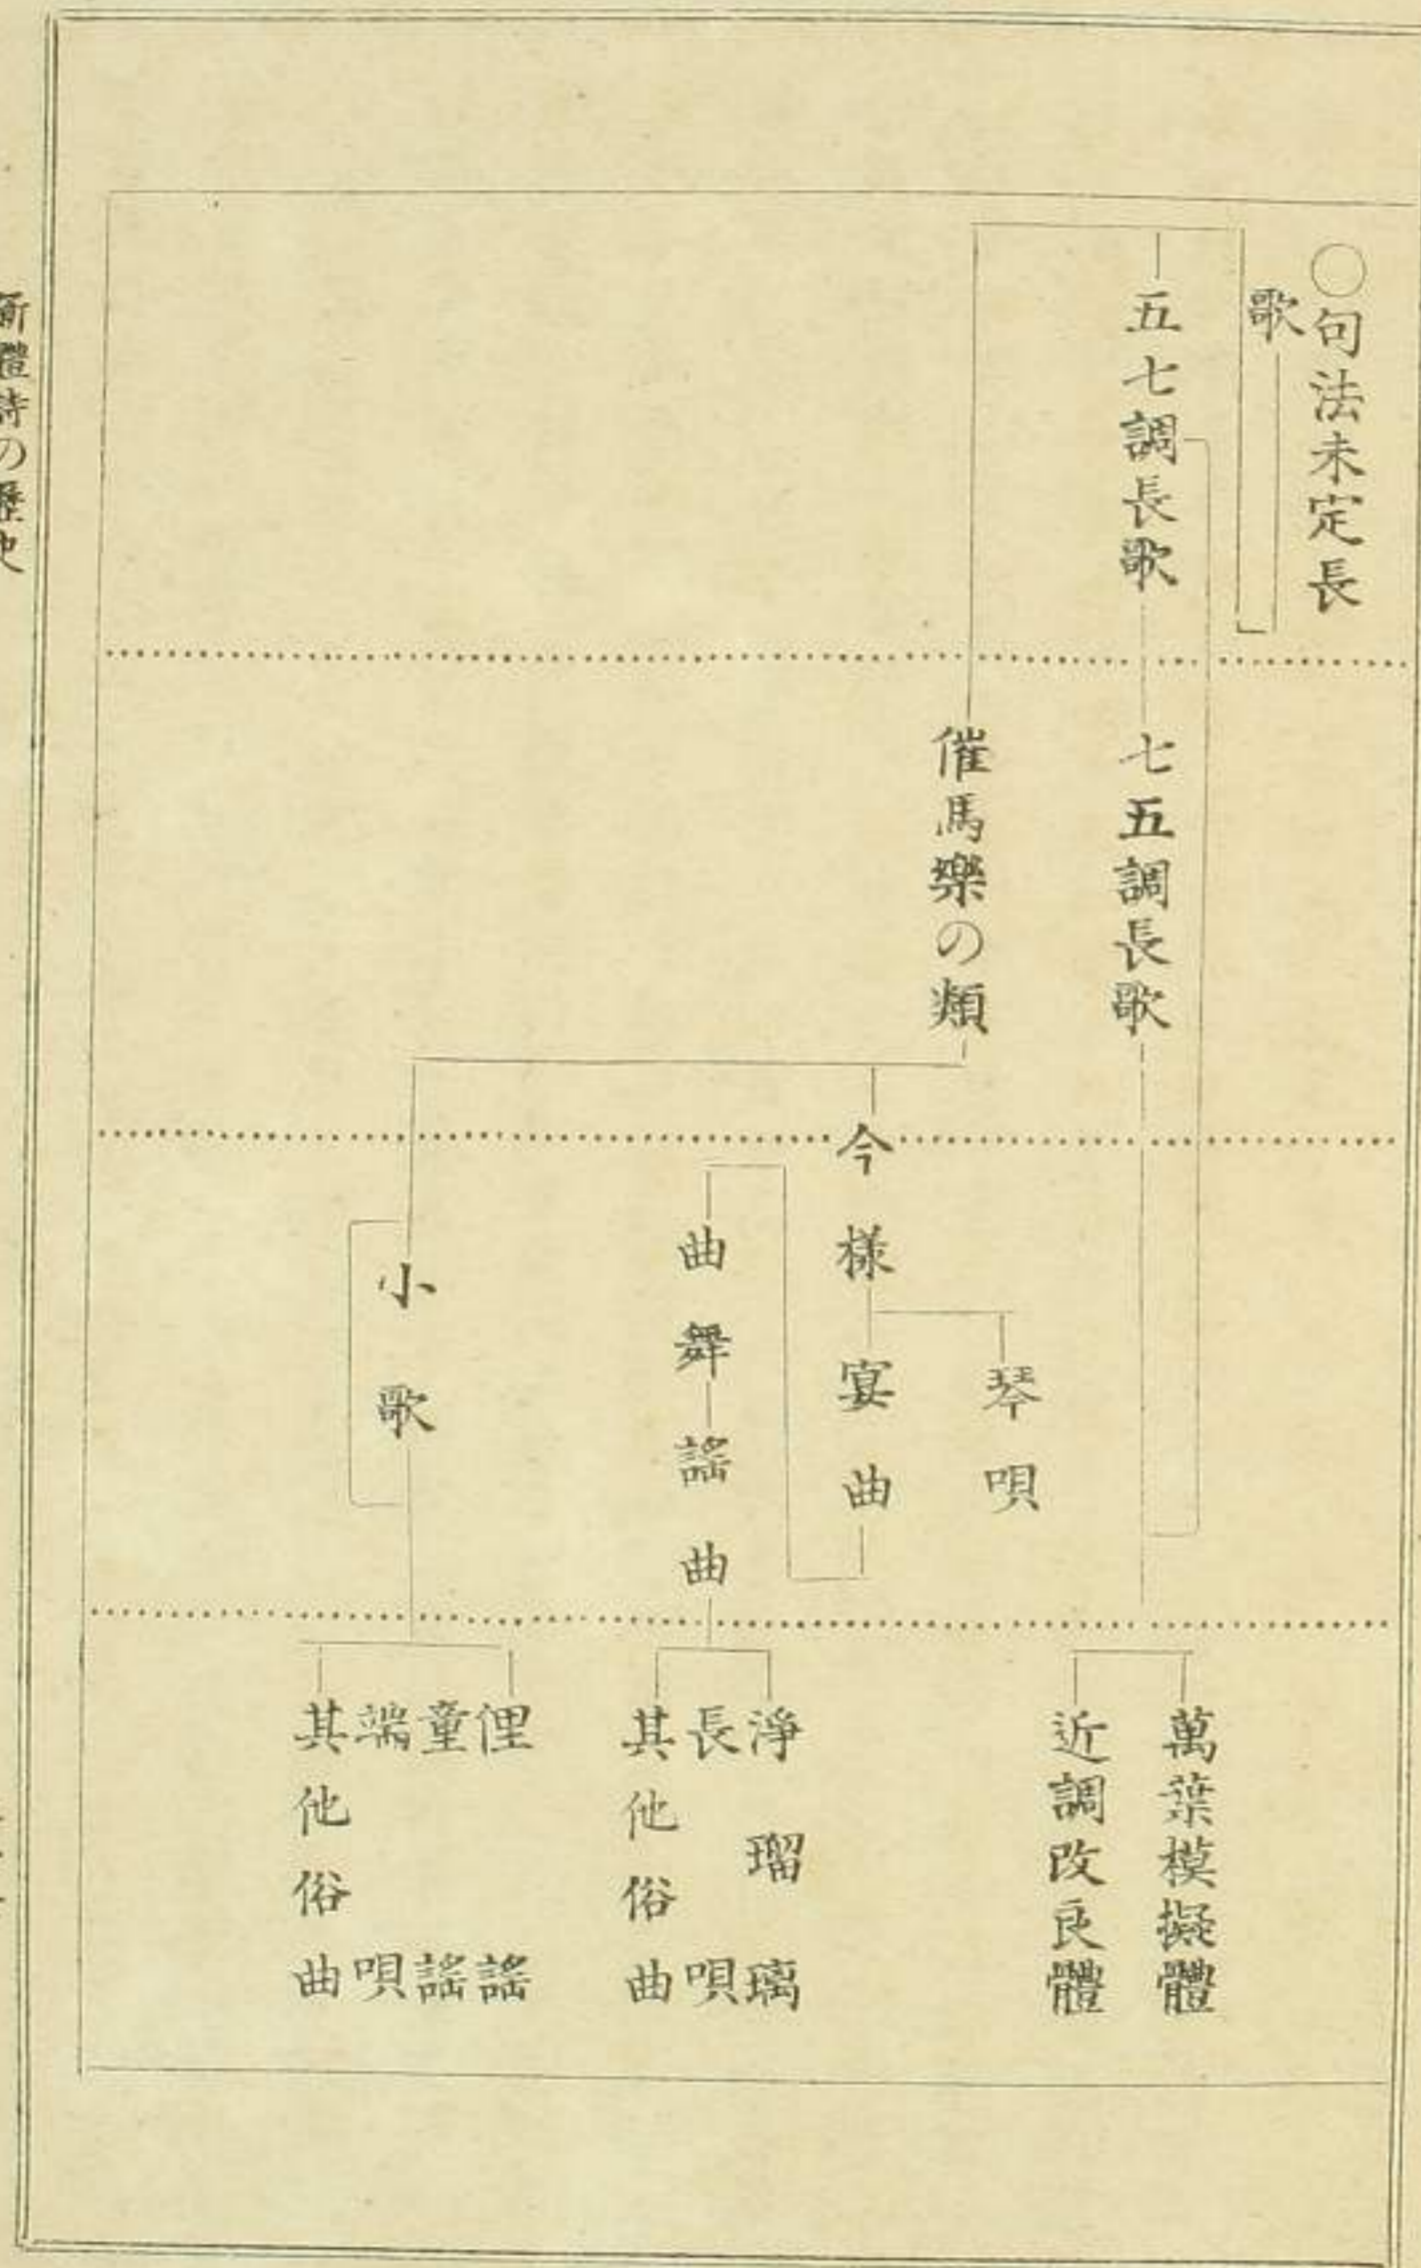 ○句法未定長
歌
五七調長歌
七五調長歌
催馬樂の類
今樣
琴唄
宴曲
曲舞
謠曲
小歌
萬葉模擬體
近調改良體
淨瑠璃
長唄
其他俗曲
俚謠
童謠
端唄
其他俗曲
新體詩の歷史